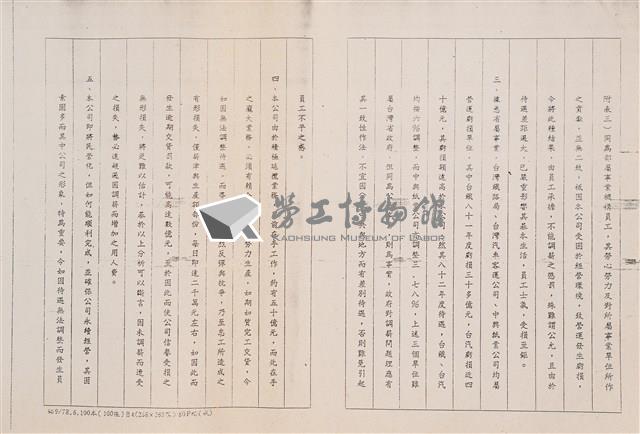 附表三）同為部屬事業機構員工，其勞心勞力及對所屬事業單位所作
之貢獻，並無二致，祇因本公司受困於經營環境，致營運發生虧損，
今將此種結果，由員工承擔，不能調薪之懲罰，殊難謂公允，且由於
待遇差距過大，已嚴重影響其基本生活，員工士氣，受損至鉅。
三、據悉省屬事業，台灣鐵路局、台灣汽車客運公司、中興紙業公司均屬
營運虧損單位，其中台鐵八十一年度虧損三十多億元左右，台汽虧損近四
十億元，其虧損額遠高於本公司，然其八十二年度待遇，台鐵、台汽
均按六％調整，而中興紙業公司調整三．七八％，上述三個單位雖
屬台灣省政府，但同為 則為事實，政府對調薪問題理應有
其一致性作法，不宜因 地方而有差別待遇，否則難免引起
員工不平之感。
四、本公司由於積極延攬業務，目前在手工作，約有五十億元，而此在手
之龐大業務，必須有賴 努力生產，如期如質完工交貨，今
如因無法調整待遇，而 反保與抗爭，乃至怠工所造成之
有形損失，僅薪津與生產部份，每日即達二千萬元左右，如因此而
發生逾期交貨罰款，可能高達數億元，至於因此而使公司信譽受損之
無形損失，將更難以估計，基於以上分析可以斷言，因未調薪而遭受
之損失，勢必遠超過因調薪而增加之用人費。
五、本公司即將民營化，但如何能順利完成，並確保公司永續經營，其因
素固多而其中公司之形象，特為重要，今如因待遇無法調整而發生員
勞工博物館
KAOHSIUNG MUSEUM OF LABOR